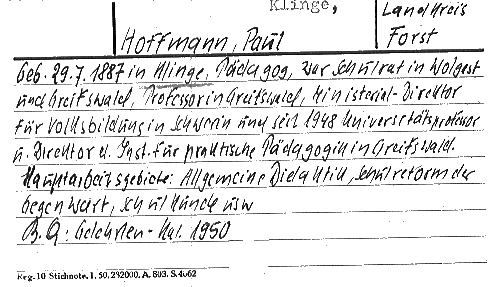 Klinge,
Landkreis
Hoffmann, Paul
Forst
Geb. 29.7.1887 in Klinge, Pädagog, war Schulrat in Wolgast
und Greifswald, Professor in Greifswald, Ministerial-Direktor
für Volksbildung in Schwerin und seit 1948 Universitätsprofessor
u. Direktor d. Inst. für praktische Pädagogik in Greifswald.
Hauptarbeitsgebiete: Allgemeine Didaktik, Schulreform der
Gegenwart, Schulkunde usw
B.Q: Gelehrten-Kal. 1950
Reg. 10 Stichnote. 1. 50. 232000. A. 803. S. 4662